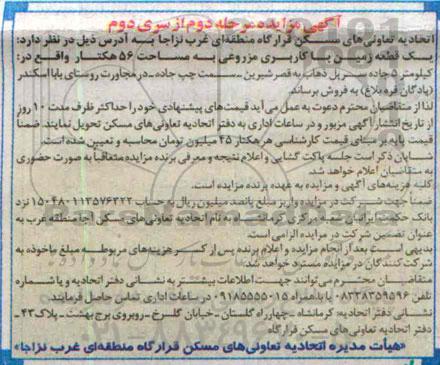 آگهی مزایده مرحله دوم از سری دوم
اتحادیه تعاونی های مسکن قرارگاه منطقه‌ای غرب نزاجا به آدرس ذیل در نظر دارد:
یک قطعه زمین با کاربری مزروعی به مساحت ۵۶ هکتار واقع در:
کیلومتر ۵ جاده سرپل ذهاب به قصر شیرین - سمت چپ جاده - در مجاورت روستای بابا اسکندر
(پادگان قره بلاغ) به فروش برساند.
لذا از متقاضیان محترم دعوت به عمل می آید قیمت‌های پیشنهادی خود را حداکثر ظرف مدت ۱۰ روز
از تاریخ انتشار آگهی مزبور و در ساعات اداری به دفتر اتحادیه تعاونی‌های مسکن تحویل نمایند. ضمناً
قیمت پایه بر مبنای قیمت کارشناسی هر هکتار ۴۵ میلیون تومان محاسبه و تعیین شده است.
شایان ذکر است جلسه پاکت گشایی و اعلام نتیجه و معرفی برنده مزایده متعاقباً به صورت حضوری
به متقاضیان اعلام خواهد شد.
کلیه هزینه‌های آگهی و مزایده به عهده برنده مزایده است.
ضمناً جهت شرکت در مزایده واریز مبلغ پانصد میلیون ریال به حساب ۱۵۰۴۸۰۱۱۳۵۷۶۳۲۲ نزد
بانک حکمت ایرانیان شعبه مرکزی کرمانشاه به نام اتحادیه تعاونی‌های مسکن آجا منطقه غرب به
عنوان تضمین شرکت در مزایده الزامی است.
بدیهی است بعد از انجام مزایده و اعلام برنده پس از کسر هزینه‌های مربوطه مبلغ ماخوذه به
شرکت کنندگان در مزایده مسترد خواهد شد.
متقاضیان محترم می‌توانند جهت اطلاعات بیشتر به نشانی دفتر اتحادیه و یا شماره
تلفن ۰۸۳۳۸۳۵۹۵۹۶ یا با همراه ۰۹۱۸۵۵۵۵۰۱۵ در ساعات اداری تماس حاصل فرمایند.
نشانی دفتر اتحادیه: کرمانشاه - چهارراه گلستان - خیابان گلسرخ - روبروی برج بهشت - پلاک ۴۳ -
دفتر اتحادیه تعاونی های مسکن قرارگاه
«هیأت مدیره اتحادیه تعاونی‌های مسکن قرارگاه منطقه‌ای غرب نزاجا»